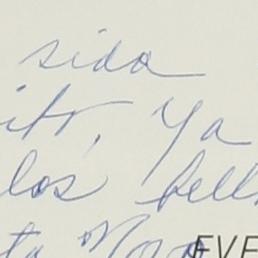 sido
ito, Ya
los bell
ta Nora
EVE